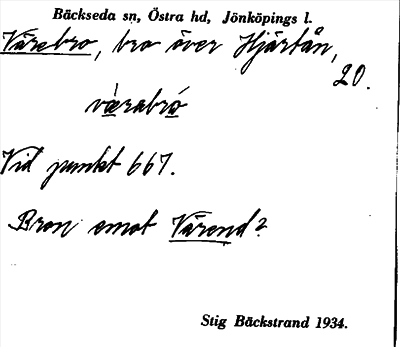 Bäckseda sn, Östra hd, Jönköpings l.
Värebro, bro över Hjärtån,
20.
värabró
Vid punkt 667.
Bron emot Värend?
Stig Bäckstrand 1934.